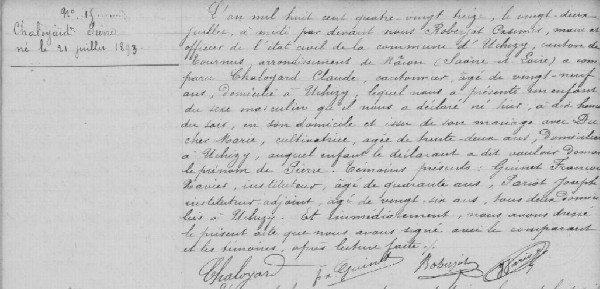 No 15
Chaloyard Pierre
né le 21 juillet 1893
L'an mil huit cent quatre-vingt treize, le vingt-deux
juillet, à midi par devant nous Roberjot Casimir, maire et
officier de l'état civil de la commune d'Uchizy, canton de
Tournus, arrondissement de Mâcon (Saône et Loire) a com
paru Chaloyard Claude, cantonnier, âgé de vingt-neuf
ans, domicilié à Uchizy, lequel nous a présenté un enfant
du sexe masculin qu'il nous a déclaré né hier, à dix heures
du soir, en son domicile et issu de son mariage avec Du
cher Marie, cultivatrice, âgée de trente-deux ans, domiciliée
à Uchizy, auquel enfant le déclarant a dit vouloir donner
le prénom de Pierre. Témoins présents : Guinet François
Xavier, instituteur, âgé de quarante ans, Pariot Joseph
instituteur adjoint, âgé de vingt-six ans, tous deux domici
liés à Uchizy. Et immédiatement, nous avons dressé
le présent acte que nous avons signé avec le comparant
et les témoins, après lecture faite.
Chaloyard Guinet Roberjot Pariot